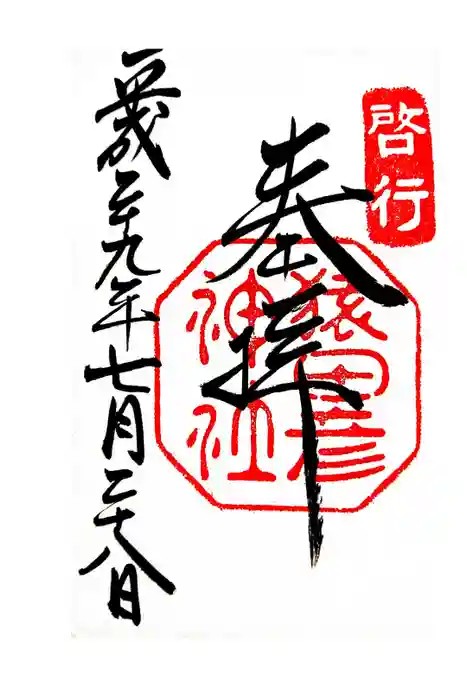 啓行
奉拝
猿田彦
神社
平成二十九年七月二十八日